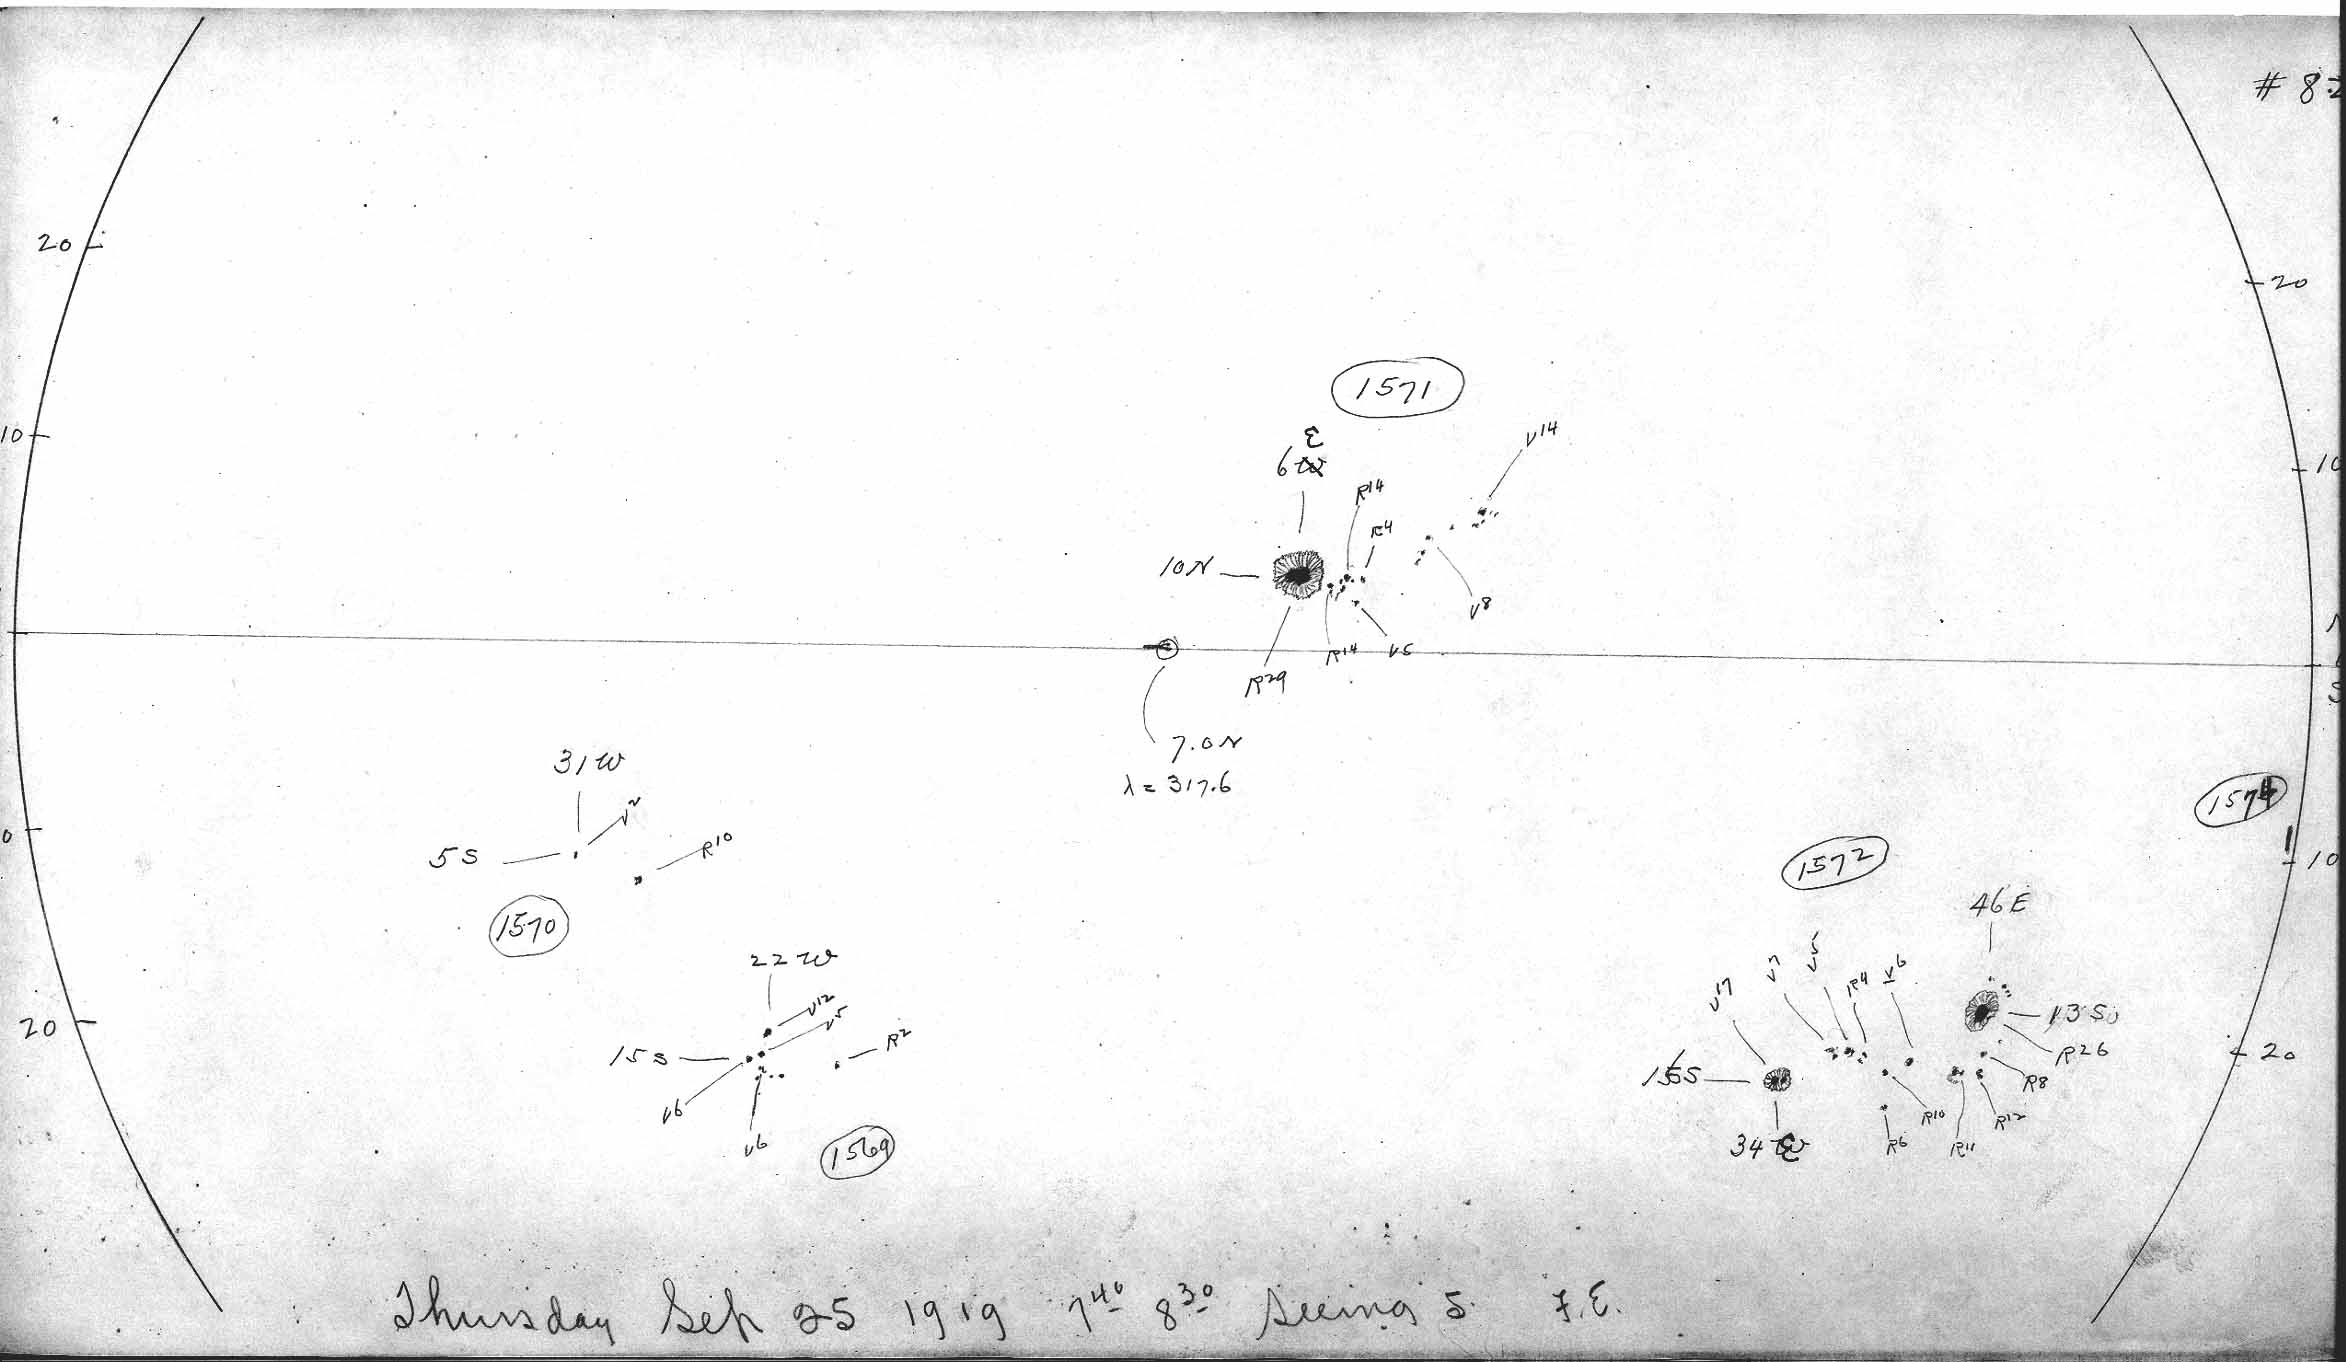 # 82
20
20
1571
10
E
6W
V14
10
R14
R4
10N
V8
R14
V5
R29
N
S
7.0N
λ = 317.6
31W
V2
5S
R10
1570
0
1574
10
1572
46E
22W
V12
V5
15S
R2
V6
V6
1569
20
V17
V7
V5
R4
V6
13S
R26
20
R8
R10
R12
R6
R11
15S
34E
Thursday Sep 25 1919 7 40 8 30 Seeing 5. F.E.